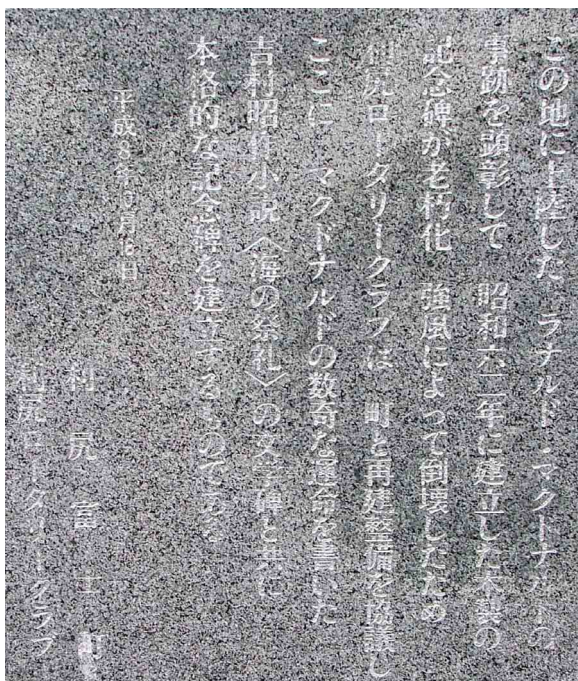 この地に上陸した ラナルド・マクドナルドの
事跡を顕彰して 昭和六二年に建立した木製の
記念碑が老朽化 強風によって倒壊したため
利尻ロータリークラブは 町と再建整備を協議し
ここに マクドナルドの数奇な運命を書いた
吉村昭作小説〈海の祭礼〉の文学碑と共に
本格的な記念碑を建立するものである
平成8年 月 日
利尻富士町
利尻ロータリークラブ